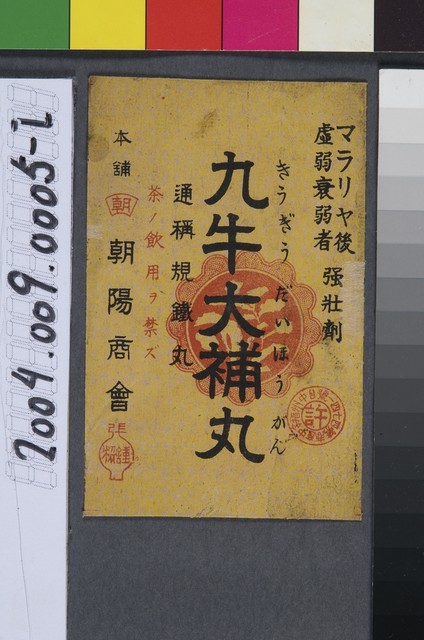 マラリヤ後
虚弱衰弱者 强壯劑
きうぎうだいほうがん
九牛大補丸
通稱規鐵丸
茶ノ飲用ヲ禁ズ
本舖
朝
朝陽商會
許
張
2004.009.0005-i